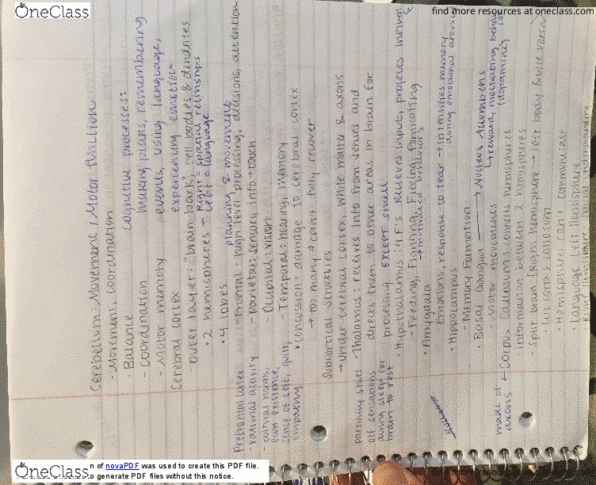 OneClass
find more resources at oneclass.com
Cerebellum: Movement + Motor Function
Movement, coordination
- Balance
- Coordination
- Motor memory
cognitive processes:
making plans, remembering
events, using language,
experiencing emotion
Cerebral cortex
outer layer: "brain bark", cell bodies & dendrites
• 2 hemispheres
Right = spatial relationships
Left = language
• 4 lobes
planning & movement
- Frontal: high level processing, decisions, attention
- Parietal: sensory info → touch
- Occipital: vision
- Temporal: hearing, memory
• concussion: damage to cerebral cortex
→ too many → can't fully recover
Prefrontal Cortex
- rational activity
- cultural norm,
own existence,
sense of self, guilt,
empathy
Subcortical Structures
→ under cerebral cortex, white matter & axons
• Thalamus: receives info from senses and
directs them to other areas in brain for
processing EXCEPT smell
partially shuts
off sensations
during sleep for
brain to rest
• Hypothalamus: 4 F's Recieves input, projects
- Feeding, Fighting, Fleeing, Fornicating
→ motivated behaviors
• Amygdala
Emotions, response to fear → intensifies memory
during emotional arousal
• Hippocampus
Memory Formation
• Basal Ganglia → Nucleus Accumbens
Motor movements
→ reward, motivating
(dopamine)
made of
axons
hemispheres
information between 2 hemispheres
• Split brain (Right hemisphere → left body & vice versa)
cut corpus callosum
• Hemispheres can't communicate
Language: left hemisphere
OneClass
n of novaPDF was used to create this PDF file.
o generate PDF files without this notice.